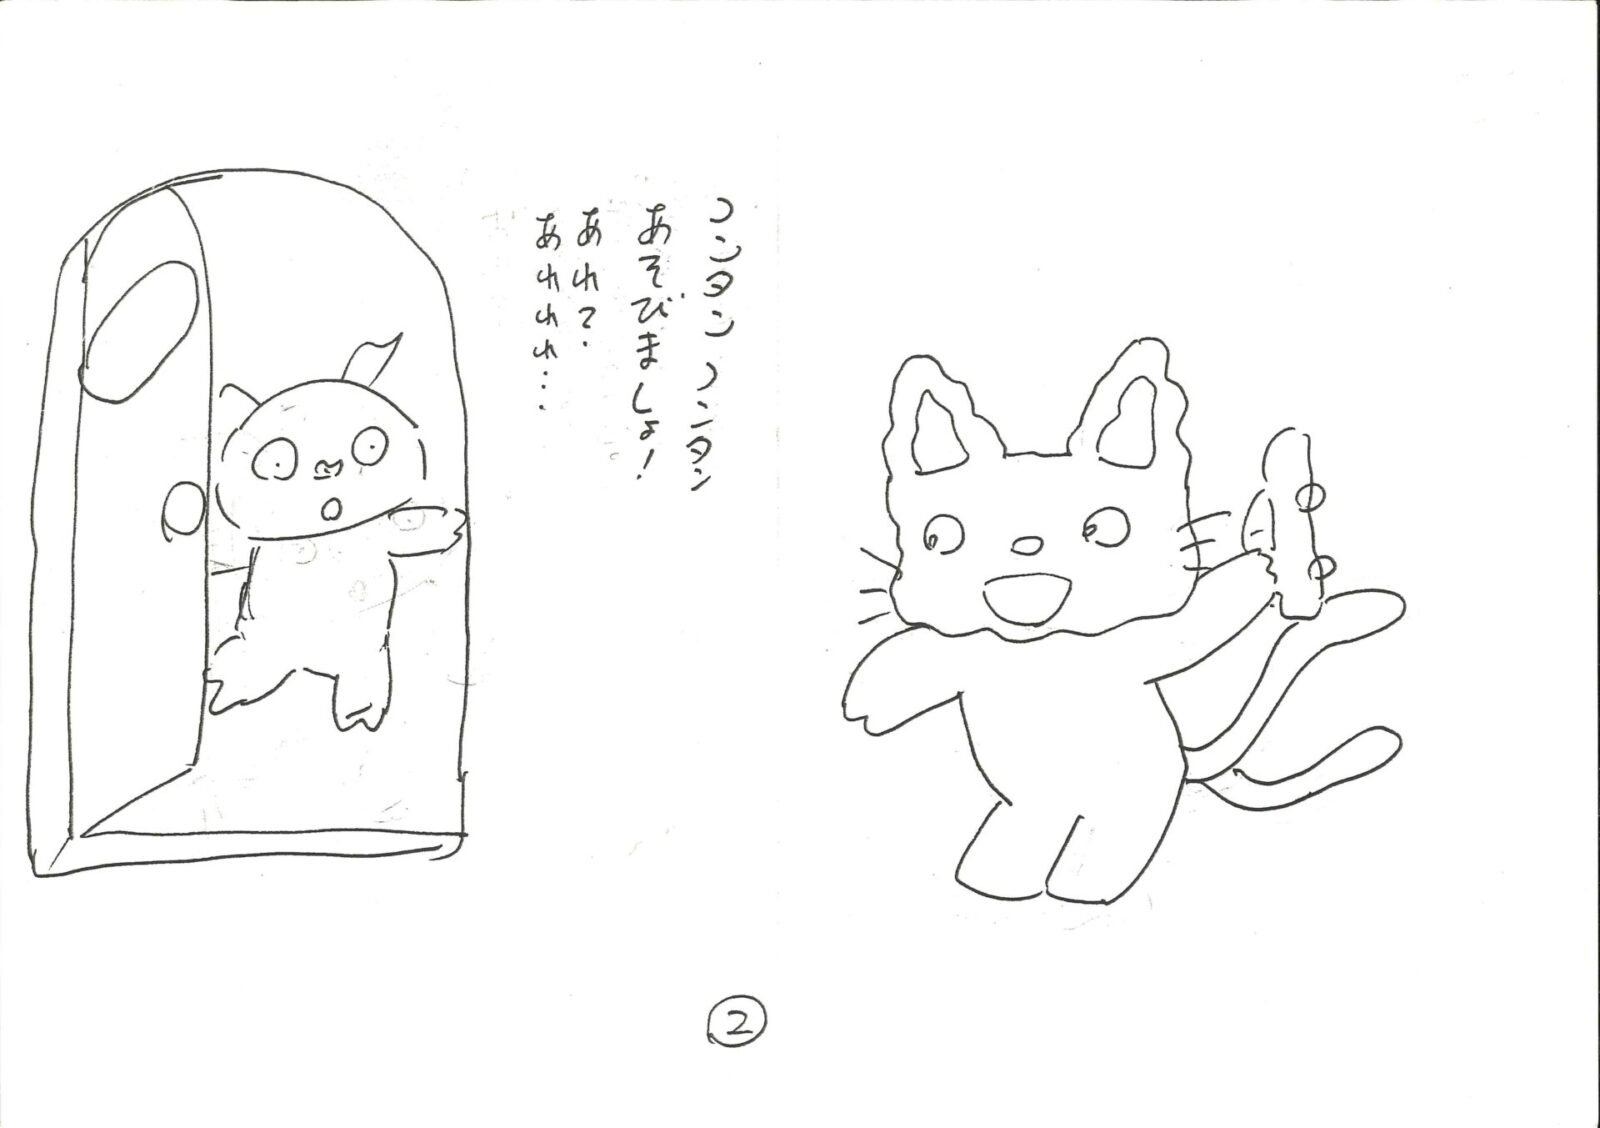 ノンタン ノンタン
あそびましょ!
あれ?
あれれれ…
2